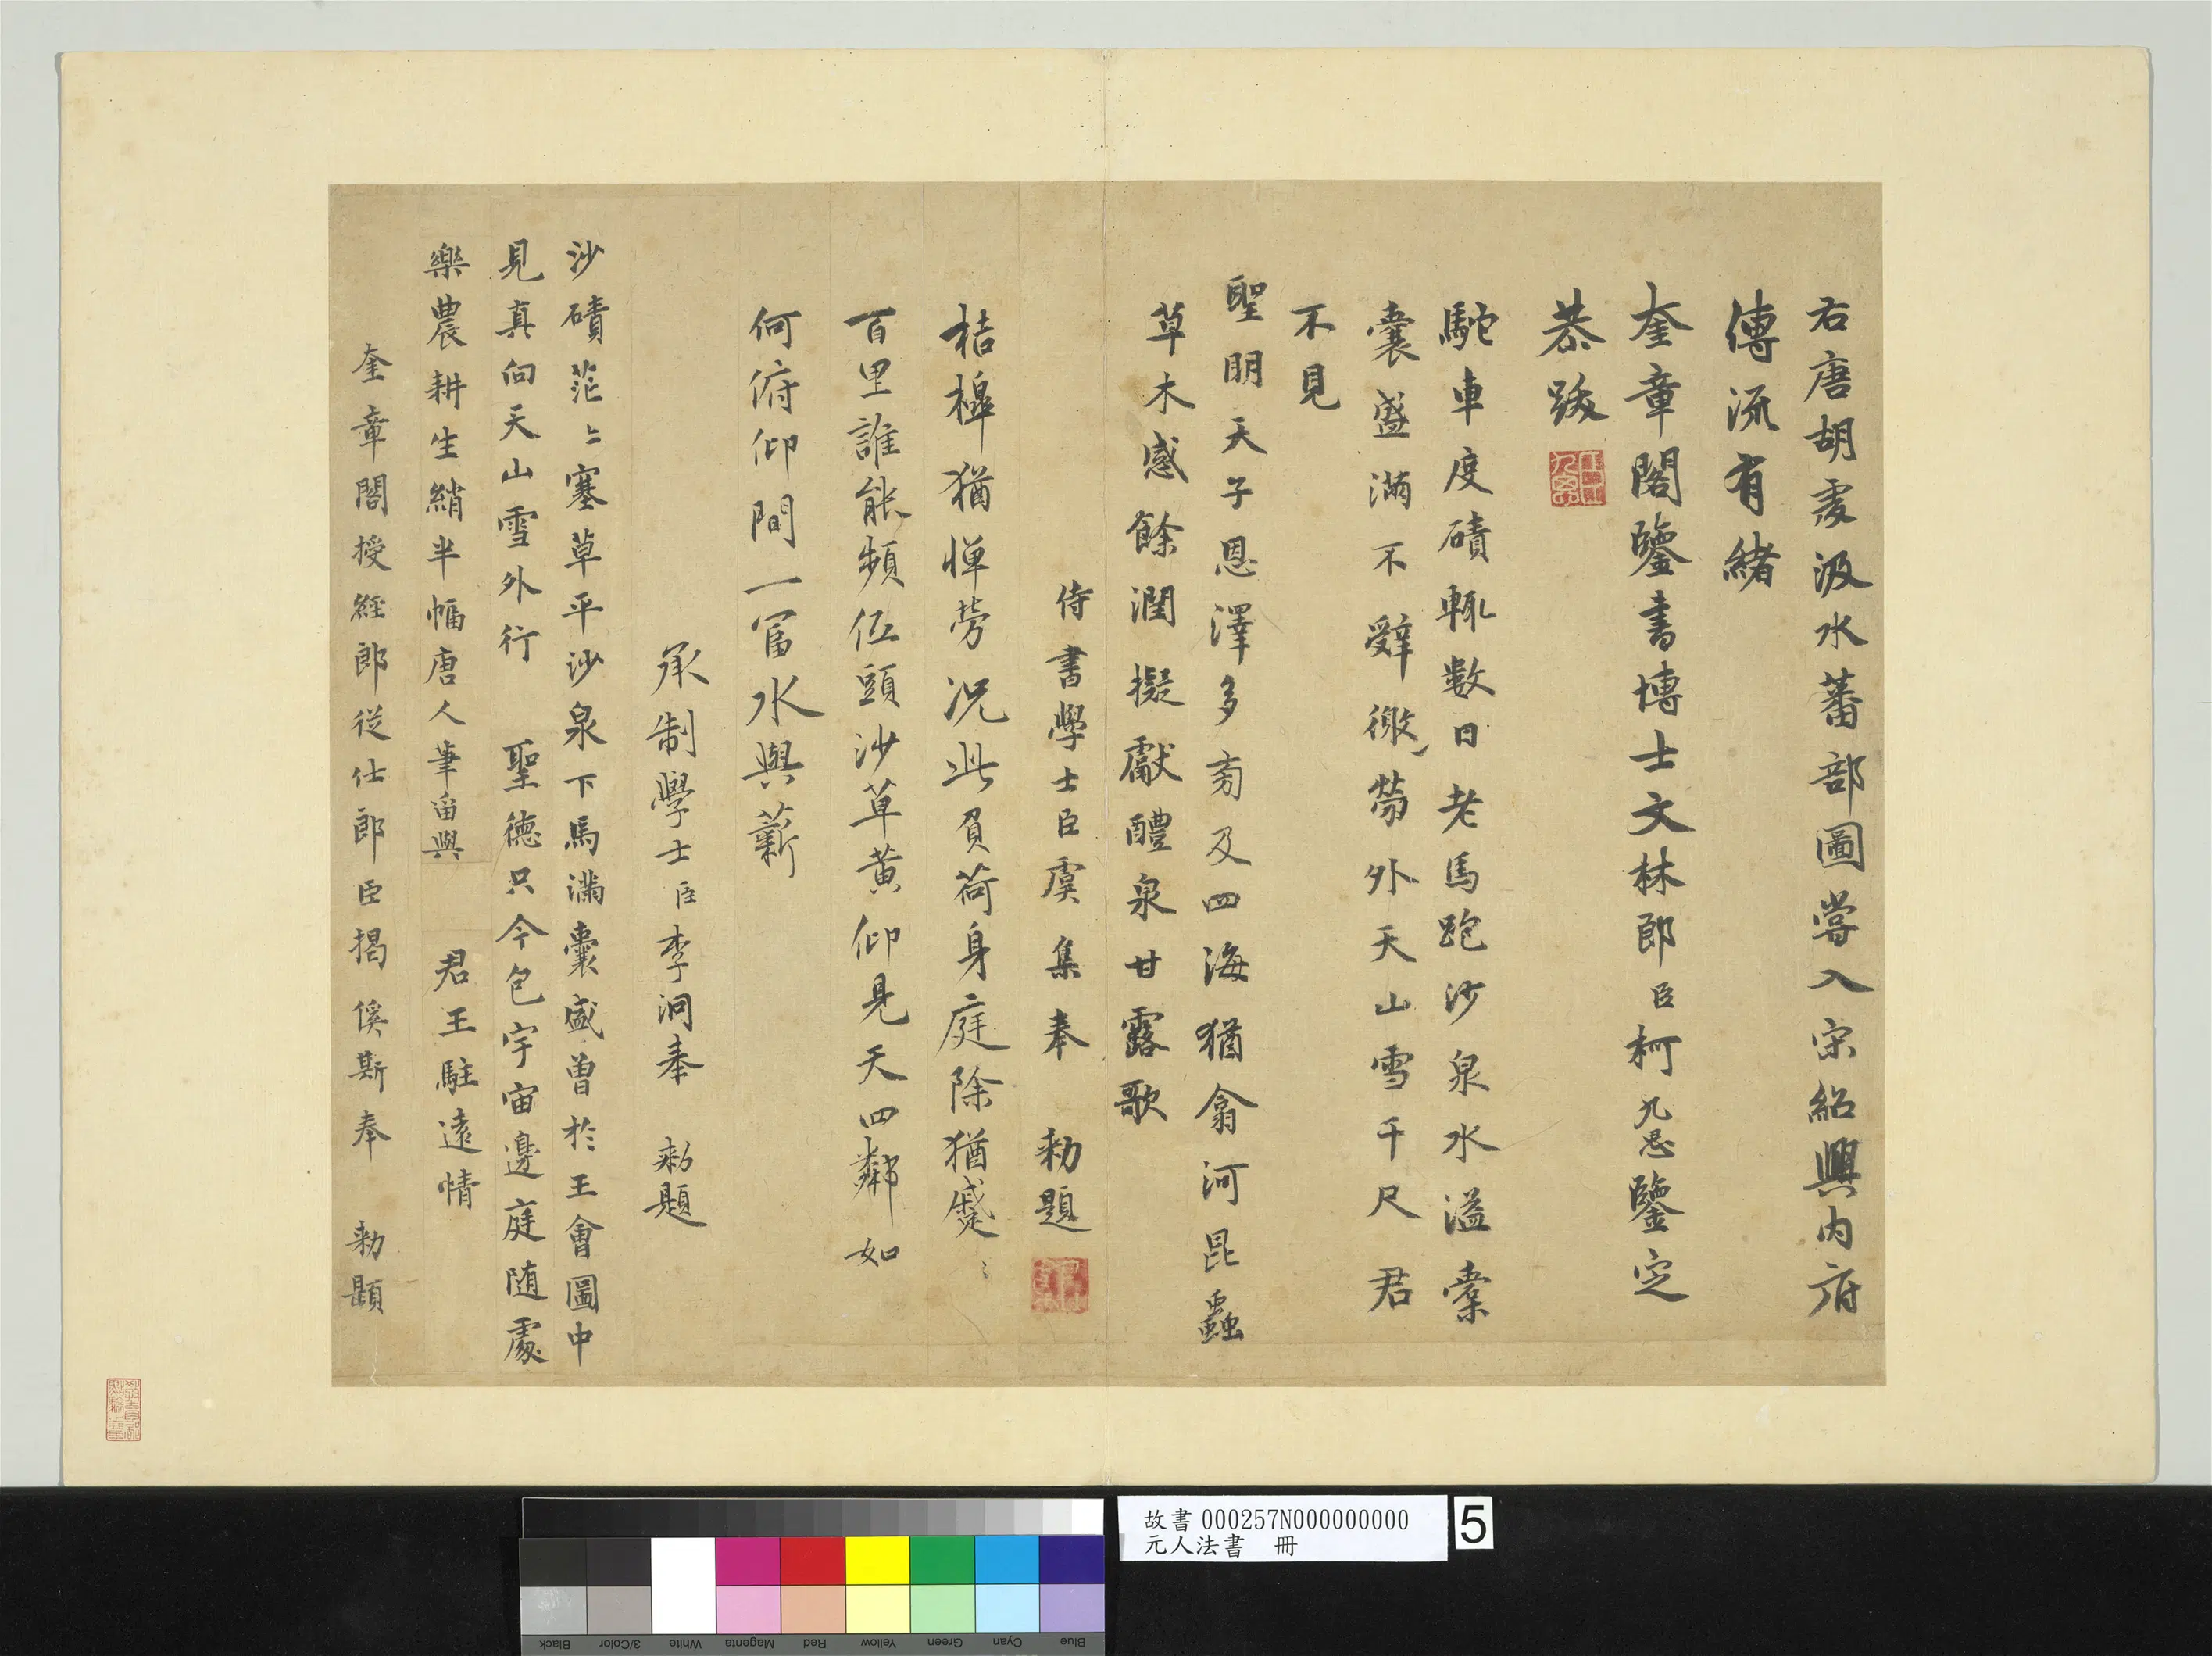 右唐胡虔汲水蕃部圖嘗入宋紹興內府
傳流有緒
奎章閣鑒書博士文林郎臣柯九思鑒定
恭跋
駝車度磧輒數日老馬跑沙泉水溢橐
囊盛滿不辭徼勞外天山雪千尺君
不見
聖明天子恩澤多旁及四海猶翕河昆蟲
草木感餘潤擬獻醴泉甘露歌
侍書學士臣虞集奉 勑題
桔橰猶憚勞況此負荷身庭除猶蹙〻
百里誰能頻低頭沙草黃仰見天四鄰如
何俯仰間一富水與薪
承制學士臣李泂奉 勑題
沙磧茫〻塞草平沙泉下馬滿囊盛曾於王會圖中
見真向天山雪外行 聖德只今包宇宙邊庭隨處
樂農耕生綃半幅唐人筆留與 君王駐遠情
奎章閣授經郎從仕郎臣揭傒斯奉 勑題
故書000257N000000000
元人法書 冊
5
Black
3/Color
White
Magenta
Red
Yellow
Green
Cyan
Blue